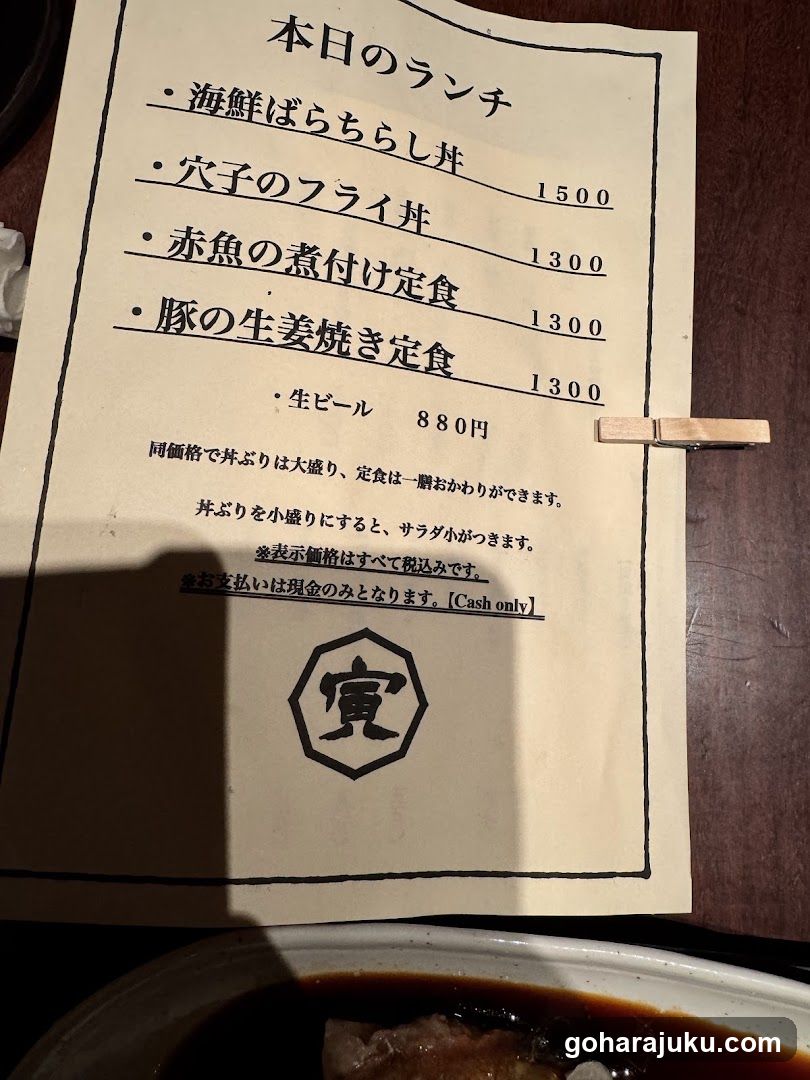 本日のランチ
・海鮮ばらちらし丼 1500
・穴子のフライ丼 1300
・赤魚の煮付け定食 1300
・豚の生姜焼き定食 1300
・生ビール 880円
同価格で丼ぶりは大盛り、定食は一膳おかわりができます。
丼ぶりを小盛りにすると、サラダ小がつきます。
※表示価格はすべて税込みです。
※お支払いは現金のみとなります。【Cash only】
寅
goharajuku.com